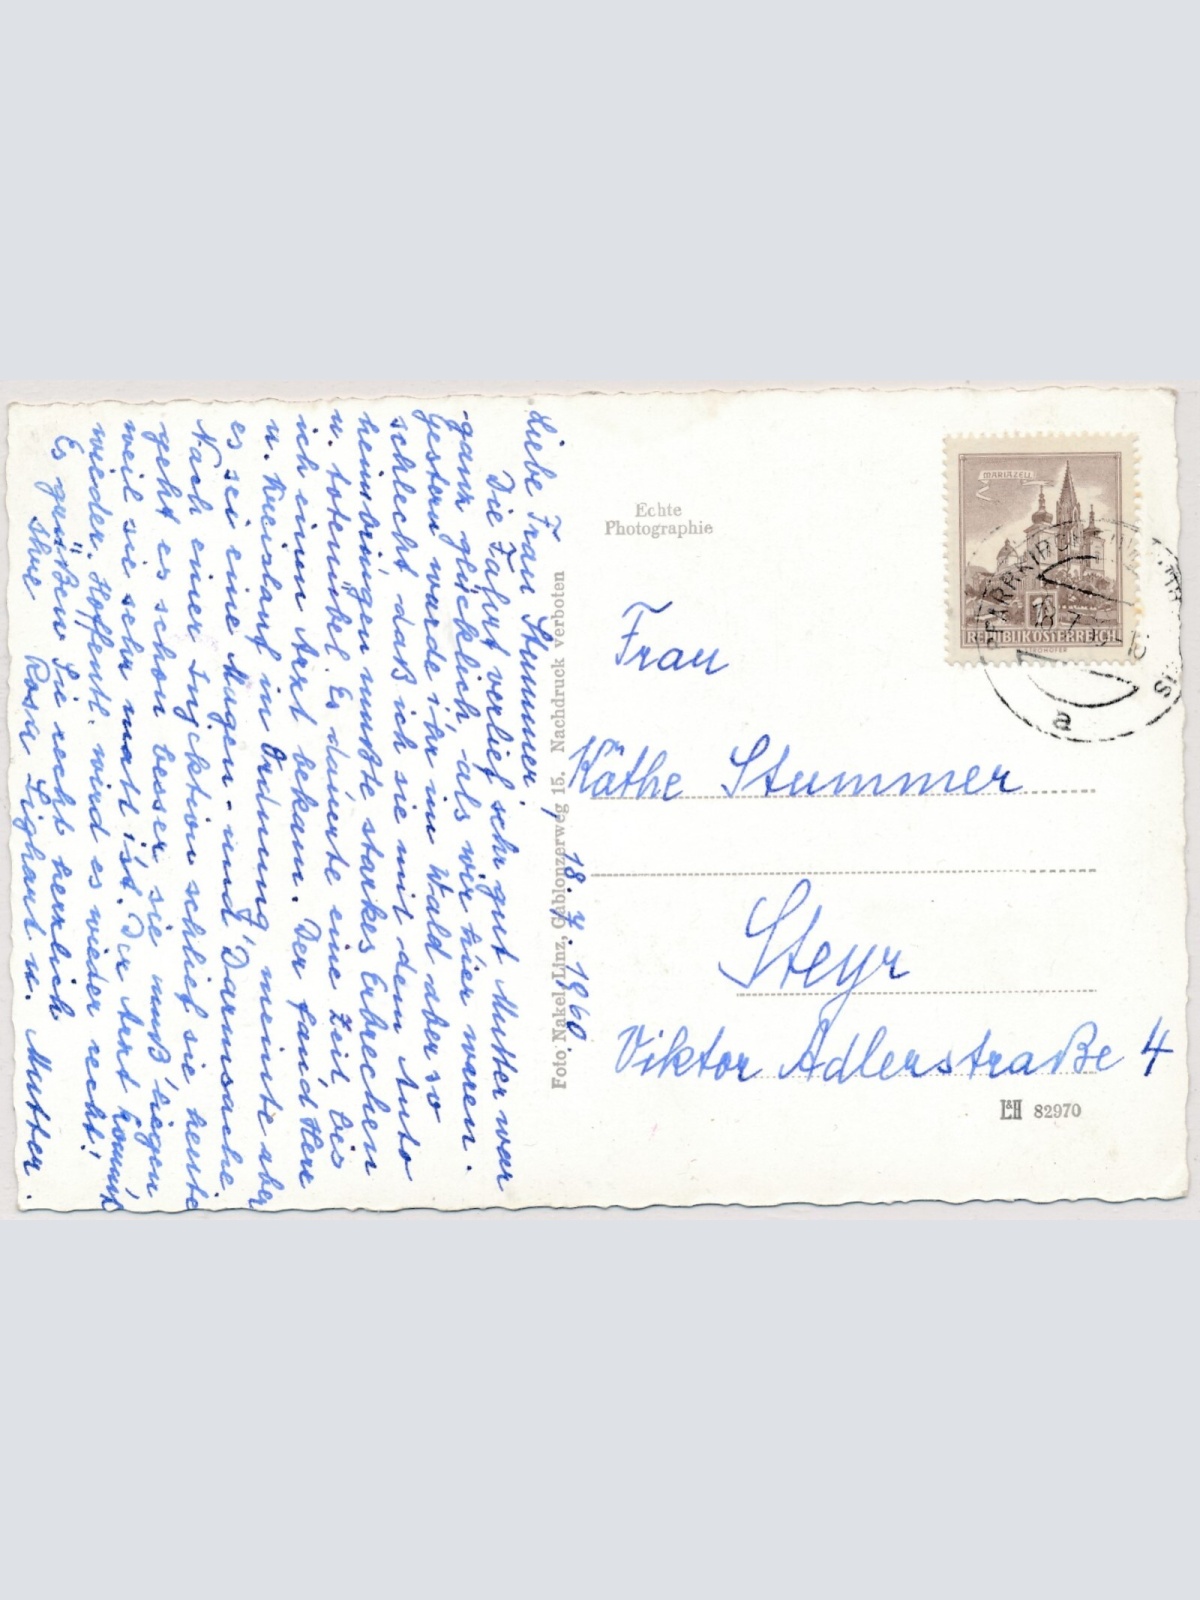 18. 7. 1960.
Liebe Frau Stummer,
Die Fahrt verlief sehr gut Mutter war
ganz glücklich als wir hier waren.
Gestern wurde ihr im Wald aber so
schlecht daß ich sie mit dem Auto
heimbringen mußte starkes Erbrechen
u. totenübel. Es dauerte eine Zeit bis
ich einen Arzt bekam. Der fand Herz
u. Kreislauf in Ordnung, meinte aber
es sei eine Magen- und Darmsache.
Nach einer Injektion schlief sie heute
geht es schon besser sie muß liegen
weil sie sehr matt ist. Der Arzt kommt
wieder. Hoffentl. wird es wieder recht!
Es grüßen Sie recht herzlich
Ihre Rosa u. Mutter.
Foto Nakel, Linz, Gablonzerweg 15. Nachdruck verboten
Echte
Photographie
MARIAZELL
REPUBLIK ÖSTERREICH
a
Frau
Käthe Stummer
Steyr
Viktor Adlerstraße 4
L&H 82970